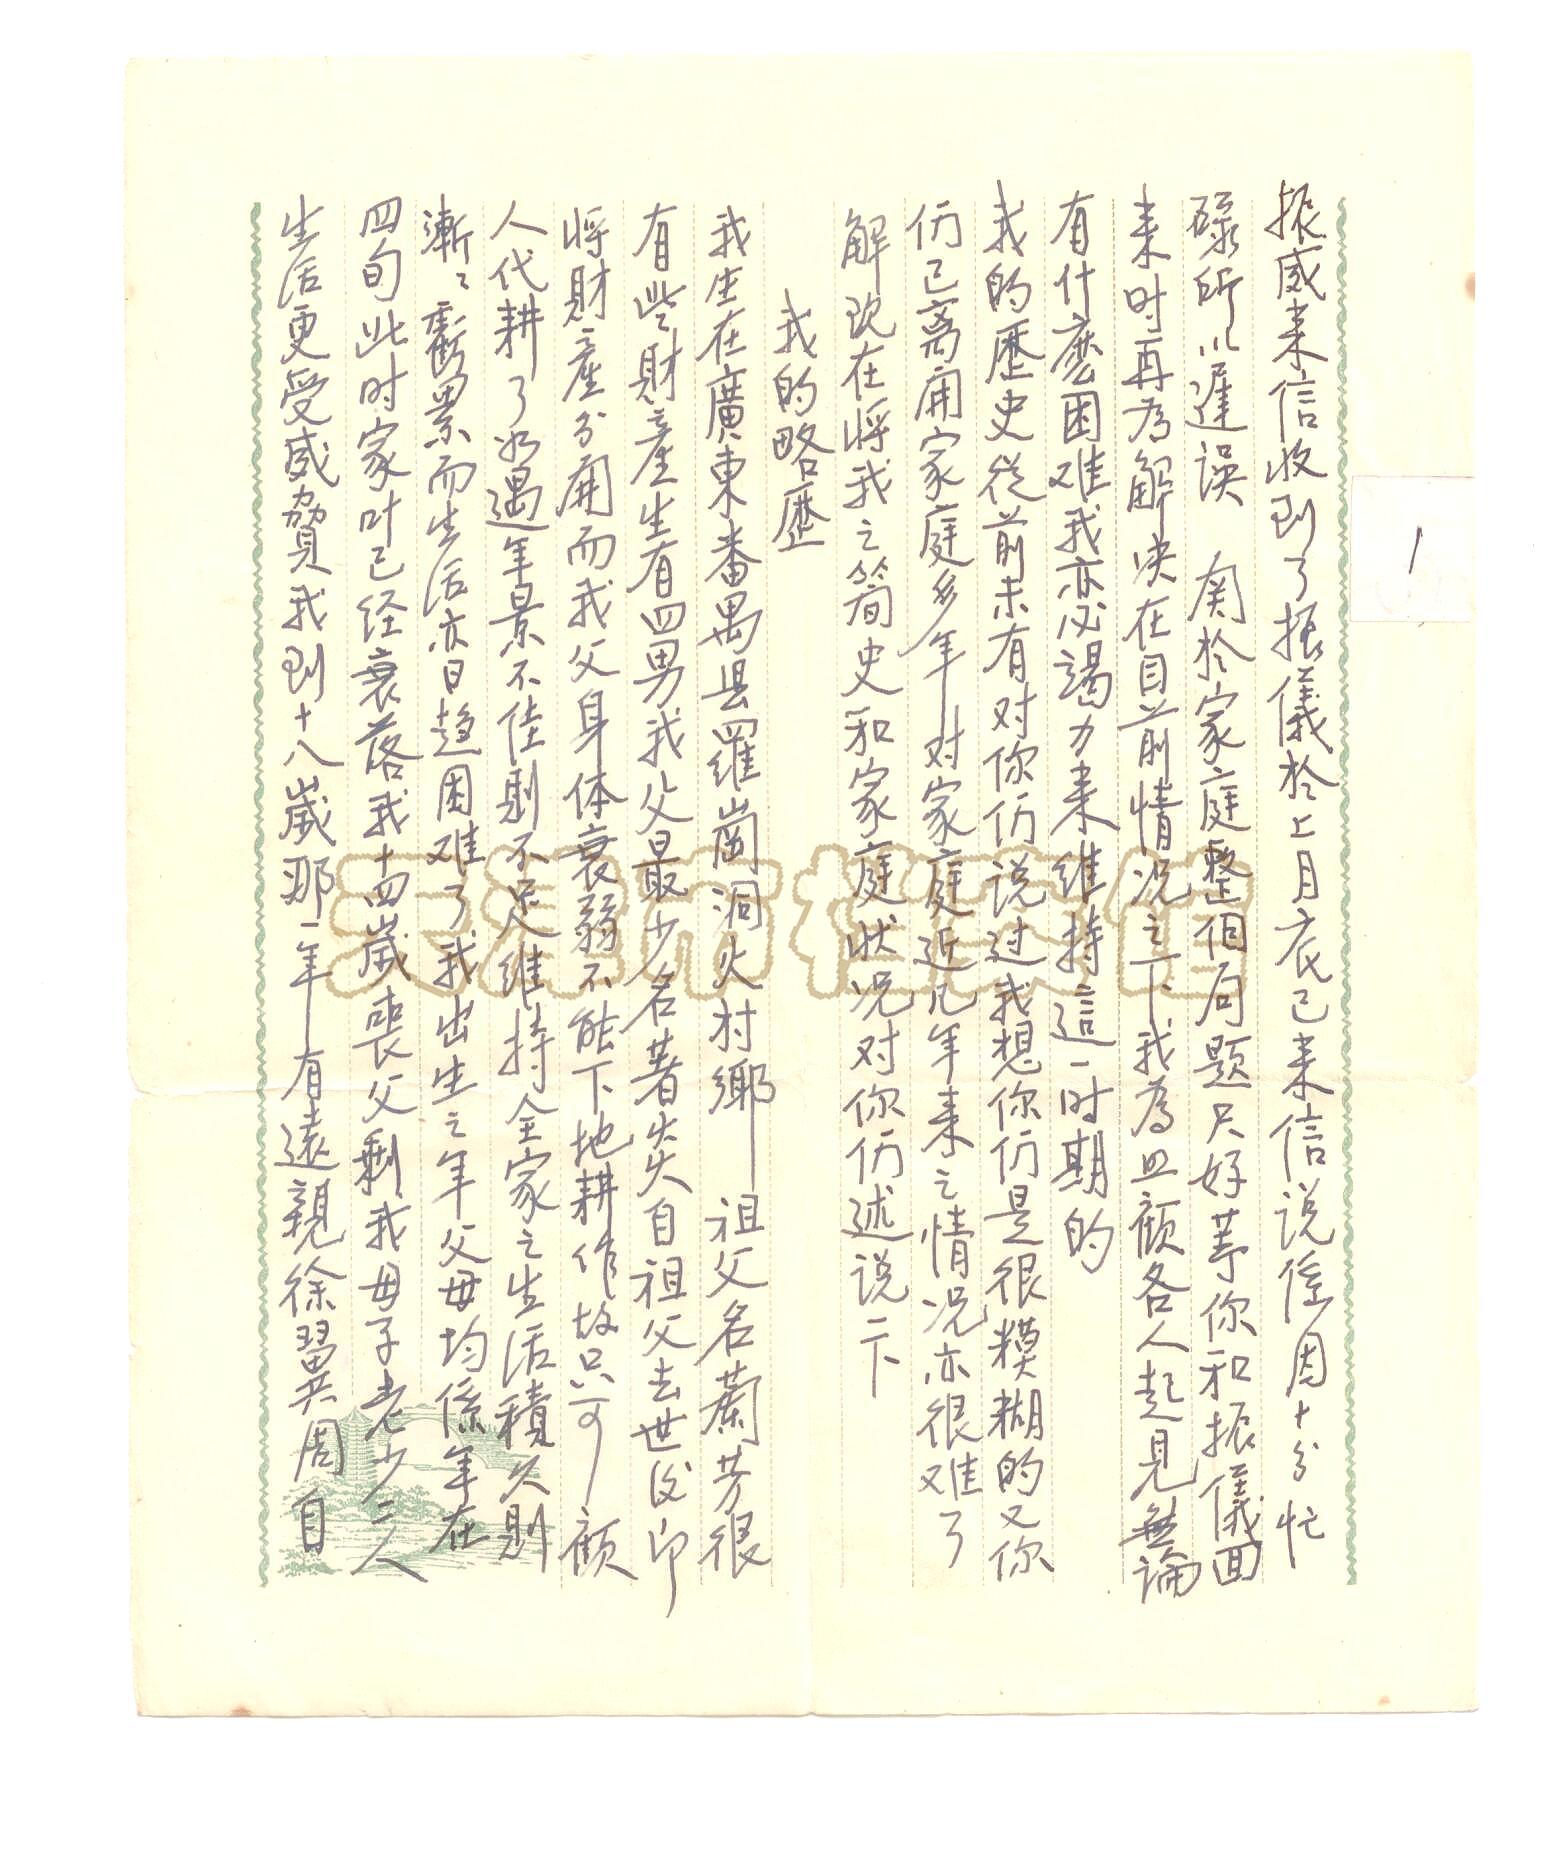 1
振威来信收到了振儀於上月底已来信说係因十分忙
碌所以遲误 関於家庭整個问题只好等你和振儀回
来时再为解决在目前情况之下我為照顧各人起見無論
有什麽困难我亦必竭力来维持這一时期的
我的歷史從前未有对你们说过我想你们是很糢糊的又你
们已离開家庭多年对家庭近几年来之情况亦很难了
解现在将我之简史和家庭状况对你们述说一下
我的略歷
我生在廣東番禺县羅崗洞火村鄉 祖父名蘭芳很
有些財產生有四男我父最少名著炎自祖父去世后即
将財產分開而我父身体衰弱不能下地耕作故只可顧
人代耕了如遇年景不佳則不足维持全家之生活積久則
漸々虧累而生活亦日趋困难了我出生之年父母均係年在
四旬此时家叶已经衰落我十四歲喪父剩我母子老少二人
生活更受威脅我到十八歲那一年有遠親徐翼周自